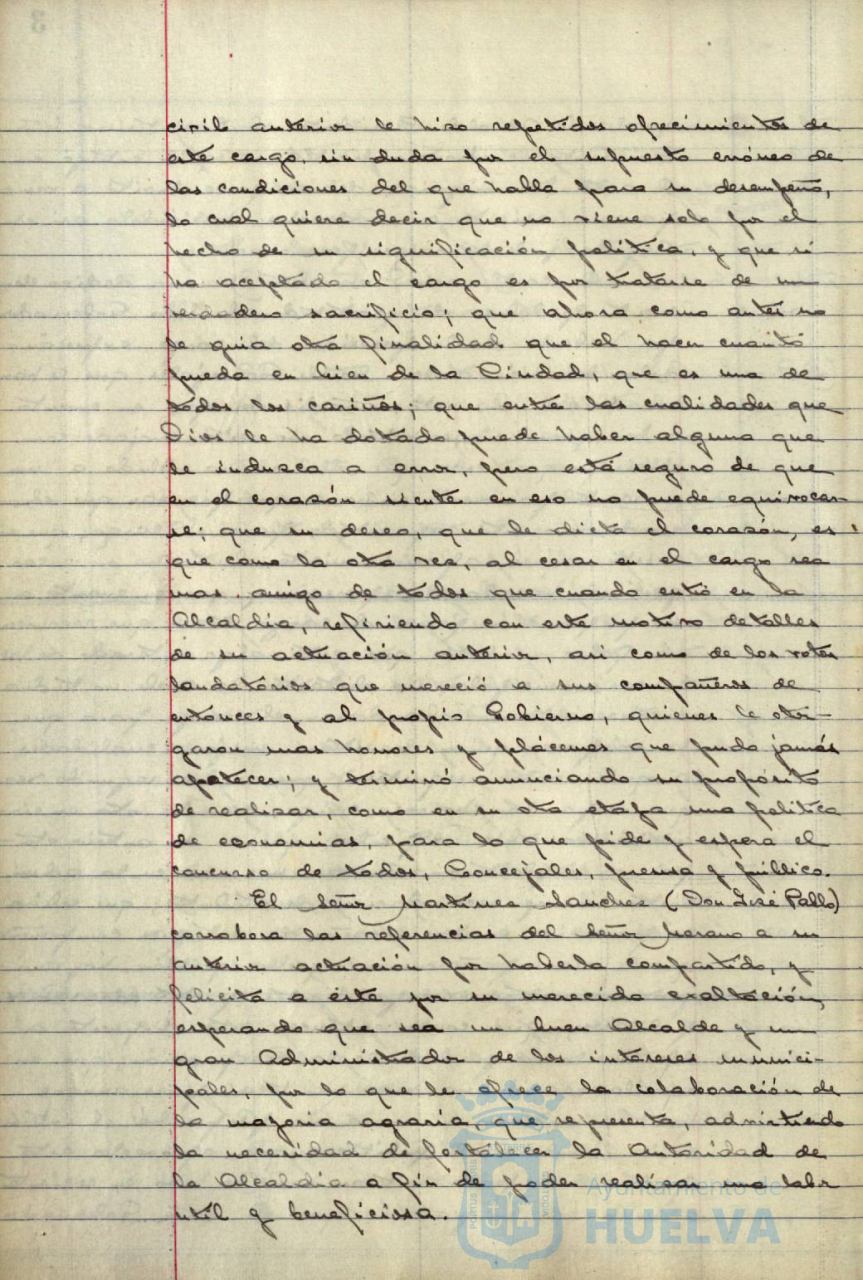 civil anterior le hizo repetidos ofrecimientos de
este cargo, sin duda por el supuesto erróneo de
las condiciones del que habla para su desempeño,
lo cual quiere decir que no viene solo por el
hecho de su significación política, y que si
ha aceptado el cargo es por tratarse de un
verdadero sacrificio; que ahora como antes no
le guia otra finalidad que el hacer cuanto
pueda en bien de la Ciudad, que es una de
todos los cariños; que entre las cualidades que
Dios le ha dotado puede haber alguna que
le induzca a error, pero está seguro de que
en el corazón siente en eso no puede equivocar-
se; que su deseo, que le dicta el corazón, es
que como la otra vez, al cesar en el cargo sea
mas amigo de todos que cuando entró en la
Alcaldía, refiriendo con este motivo detalles
de su actuación anterior, asi como de los votos
laudatorios que mereció a sus compañeros de
entonces y al propio Gobierno, quienes le otor-
garon mas honores y plácemes que pudo jamás
apetecer; y terminó anunciando su propósito
de realizar, como en su otra etapa una política
de economias, para lo que pide y espera el
concurso de todos, Concejales, prensa y público.
El Señor Martinez Sanchez (Don José Pablo)
corrobora las referencias del Señor Morano a su
anterior actuación por haberla compartido, y
felicita a éste por su merecida exaltación,
esperando que sea un buen Alcalde y un
gran Administrador de los intereses munici-
pales, por lo que le ofrece la colaboración de
la mayoria agraria, que representa, advirtiendo
la necesidad de fortalecer la Autoridad de
la Alcaldía a fin de poder realizar una labor
util y beneficiosa.
Ayuntamiento de
HUELVA